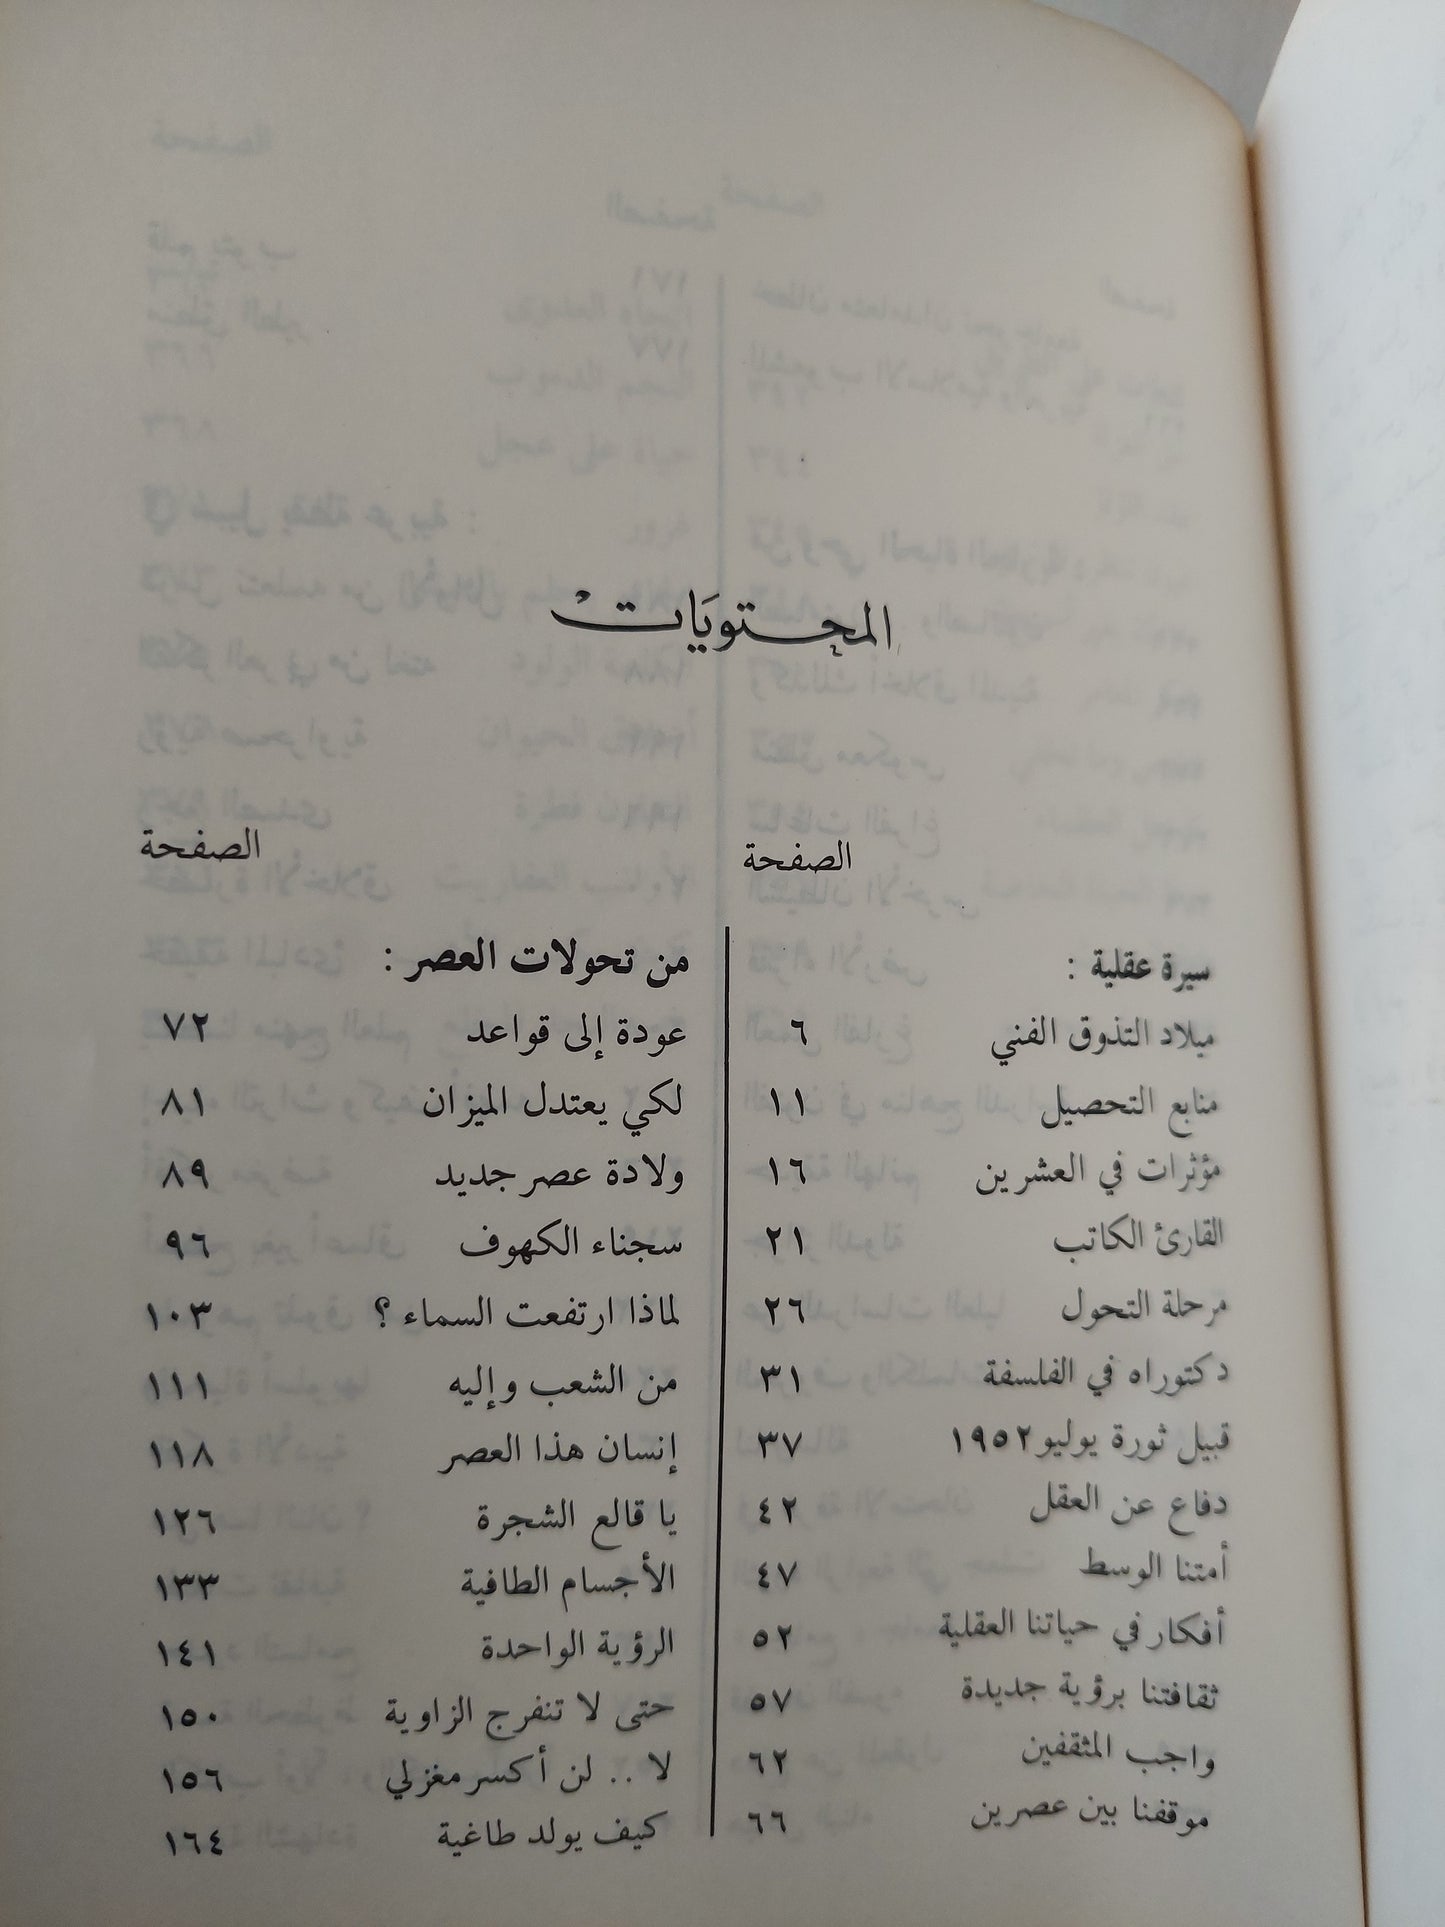 المحتويات
الصفحة
سيرة عقلية :
ميلاد التذوق الفني ٦
منابع التحصيل ١١
مؤثرات في العشرين ١٦
القارئ الكاتب ٢١
مرحلة التحول ٢٦
دكتوراه في الفلسفة ٣١
قبيل ثورة يوليو ١٩٥٢ ٣٧
دفاع عن العقل ٤٢
أمتنا الوسط ٤٧
أفكار في حياتنا العقلية ٥٢
ثقافتنا برؤية جديدة ٥٧
واجب المثقفين ٦٢
موقفنا بين عصرين ٦٦
الصفحة
من تحولات العصر :
عودة إلى قواعد ٧٢
لكي يعتدل الميزان ٨١
ولادة عصر جديد ٨٩
سجناء الكهوف ٩٦
لماذا ارتفعت السماء ؟ ١٠٣
من الشعب وإليه ١١١
إنسان هذا العصر ١١٨
يا قالع الشجرة ١٢٦
الأجسام الطافية ١٣٣
الرؤية الواحدة ١٤١
حتى لا تنفرج الزاوية ١٥٠
لا .. لن أكسر مغزلي ١٥٦
كيف يولد طاغية ١٦٤